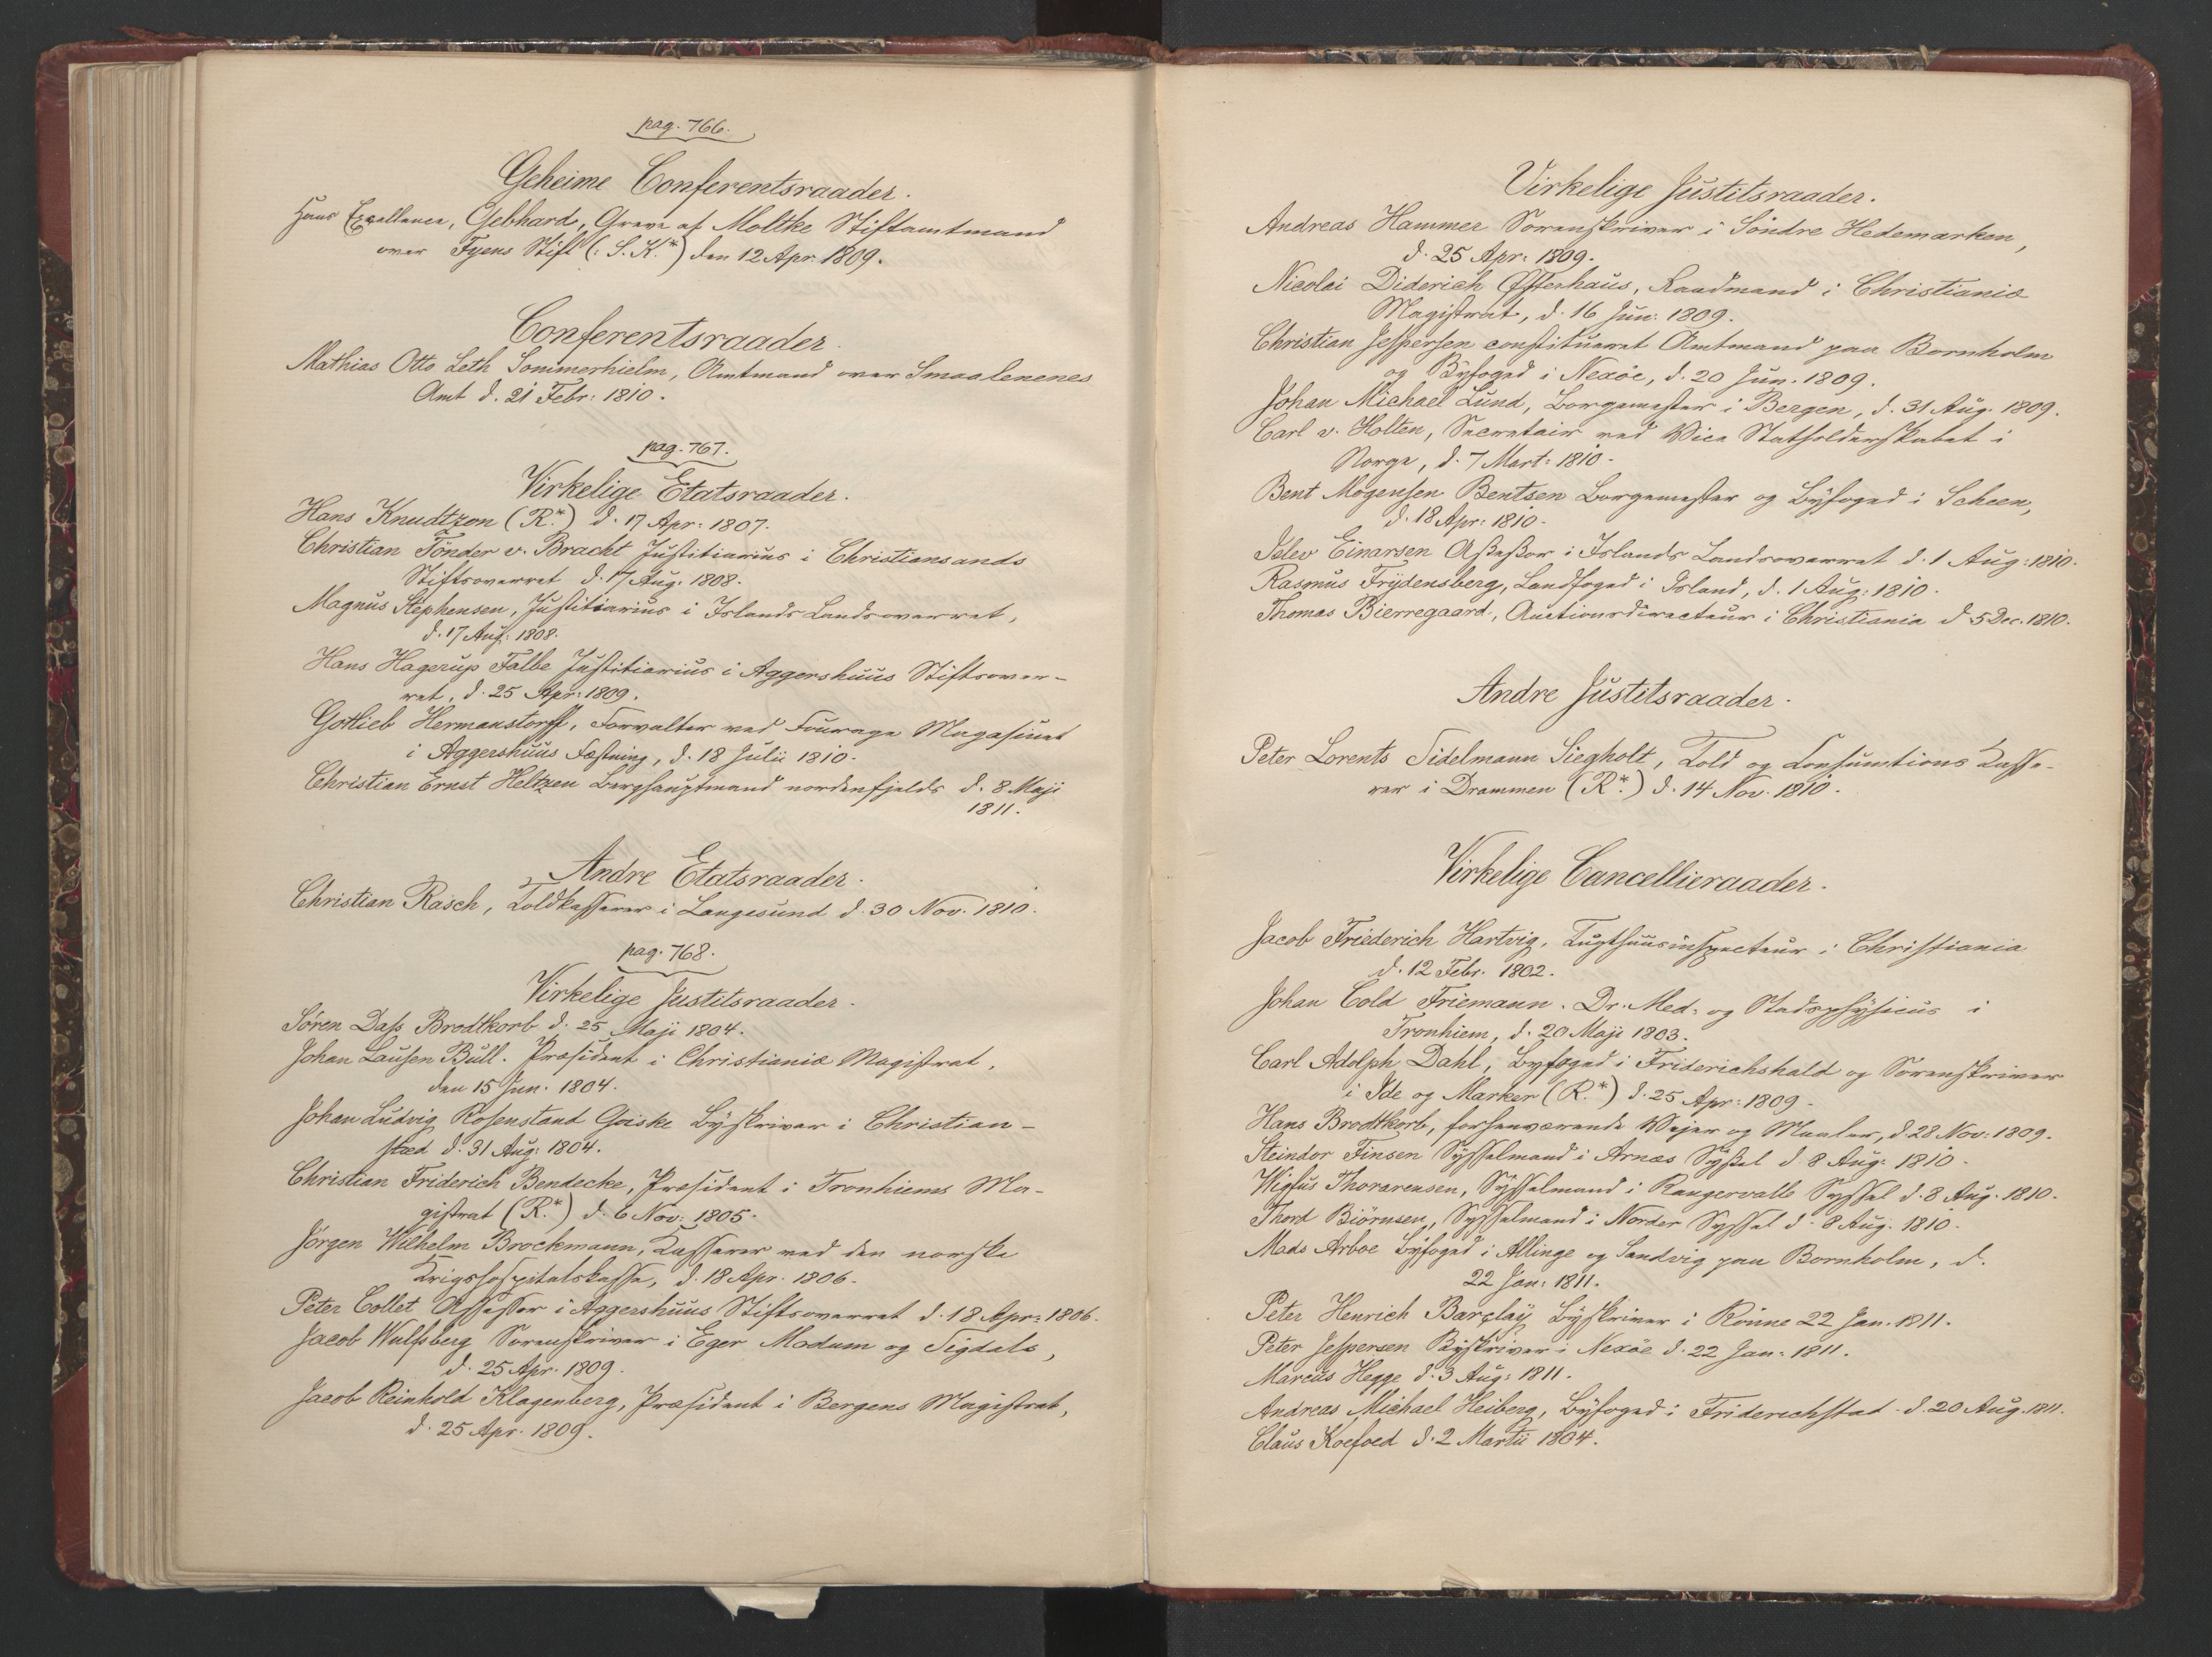 pag. 766.
Geheime Conferentsraader.
Hans Excellence, Gebhard, Greve af Moltke Stiftamtmand
over Fyens Stift (: S. K.*) den 12 Apr. 1809.
Conferentsraader.
Mathias Otto Leth Sommerhielm, Amtmand over Smaalenenes
Amt d. 21 Febr: 1810.
pag. 767.
Virkelige Etatsraader.
Hans Knudtzon (R.*) d. 17 Apr: 1807.
Christian Tönder v. Bracht Justitiarius i Christiansands
Stiftsoverret d. 17 Aug: 1808.
Magnus Stephensen, Justitiarius i Islands Landsoverret,
d. 17 Aug: 1808.
Hans Hagerup Falbe Justitiarius i Aggershuus Stiftsover-
ret, d. 25 Apr: 1809.
Gotlieb Hermanstorff, Forvalter ved Fourage Magasinet
i Aggershuus Fæstning, d. 18 Julii 1810.
Christian Ernst Heltzen Berghauptmand nordenfjelds d. 8 Maji
1811.
Andre Etatsraader.
Christian Rasch, Toldkasserer i Langesund d. 30 Nov. 1810.
pag. 768.
Virkelige Justitsraader.
Sören Dass Brodtkorb d: 25 Maji 1804.
Johan Lausen Bull. Præsident i Christiania Magistrat,
den 15 Jun. 1804.
Johan Ludvig Rosenstand Goiske Byskriver i Christian-
sted d. 31 Aug: 1804.
Christian Friderich Bendecke, Præsident i Tronhiems Ma-
gistrat (R.*) d. 6 Nov: 1805.
Jörgen Wilhelm Brockmann, Kasserer ved den norske
Krigshospitalskasse, d. 18 Apr. 1806.
Peter Collet Assessor i Aggershuus Stiftsoverret d. 18 Apr: 1806.
Jacob Wulfsberg Sorenskriver i Eger Modum og Sigdals,
d. 25 Apr. 1809.
Jacob Reinhold Klagenberg, Præsident i Bergens Magistrat,
d. 25 Apr. 1809.
Virkelige Justitsraader.
Andreas Hammer Sorenskriver i Söndre Hedemarken,
d. 25 Apr: 1809.
Nicolai Diderich Ofterhaus, Raadmand i Christiania
Magistrat, d. 16 Jun: 1809.
Christian Jespersen constitueret Amtmand paa Bornholm
og Byfoged i Nexöe, d. 20 Jun. 1809.
Johan Michael Lund, Borgemester i Bergen, d. 31 Aug. 1809.
Carl v. Holten, Secretair ved Vice Statholderskabet i
Norge, d. 7 Mart: 1810.
Bent Mogensen Bentsen Borgemester og Byfoged i Scheen,
d. 18 Apr: 1810.
Isleu Einarsen Assessor i Islands Landsoverret d. 1 Aug: 1810.
Rasmus Frydensberg, Landfoged i Island, d. 1 Aug: 1810.
Thomas Bierregaard, Auctionsdirecteur i Christiania d. 5 Dec. 1810.
Andre Justitsraader.
Peter Lorents Tidelmann Siegholt, Told og Consumtions Kasse-
rer i Drammen (R.*) d. 14 Nov. 1810.
Virkelige Cancellieraader.
Jacob Friederich Hartvig, Tugthuusinspecteur i Christiania
d. 12 Febr. 1802.
Johan Cold Friemann. Dr. Med. og Stadsphysicus i
Tronhiem, d. 20 Maji 1803.
Carl Adolph Dahl, Byfoged i Friderichshald og Sorenskriver
i Ide og Marker (R.*) d. 25 Apr: 1809.
Hans Brodtkorb, forhenværende Vejer og Maaler, d. 28 Nov: 1809.
Steindor Finsen Sysselmand i Arnæs Syssel d. 8 Aug: 1810.
Wigfus Thorarensen, Sysselmand i Rangervalle Syssel d. 8 Aug. 1810.
Thord Biörnsen, Sysselmand i Norder Syssel d. 8 Aug. 1810.
Mads Arboe Byfoged i Allinge og Sandvig paa Bornholm, d.
22 Jan: 1811.
Peter Henrich Barclay, Byskriver i Rönne 22 Jan. 1811.
Peter Jespersen Byskriver i Nexöe d. 22 Jan: 1811.
Marcus Hegge d. 3 Aug: 1811.
Andreas Michael Heiberg, Byfoged i Friderichstad d. 20 Aug. 1811.
Claus Koefoed d. 2 Martii 1804.